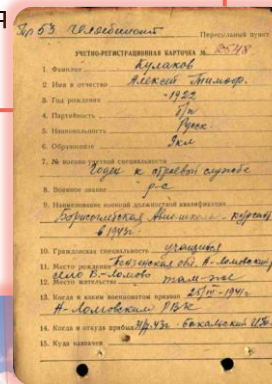 я
Гр 53
Пересыльный пункт
УЧЕТНО-РЕГИСТРАЦИОННАЯ КАРТОЧКА №
1. Фамилия Кулаков
2. Имя и отчество Алексей Тимоф.
3. Год рождения -1922
4. Партийность б/п
5. Национальность Русск.
6. Образование 9кл
7. № военно-учетной специальности
Годен к строевой службе
8. Военное звание р-с
9. Наименование военной должностной квалификации
Борисоглебская Авиашкола - курсант
в 1943г.
10. Гражданская специальность учащийся
11. Место рождения Пензенская обл. Н-Ломовский
село В-Ломово
12. Место жительства там-же
13. Когда и каким военкоматом призван 25/III-1941г
Н-Ломовским РВК
14. Когда и откуда прибыл
15. Куда назначен